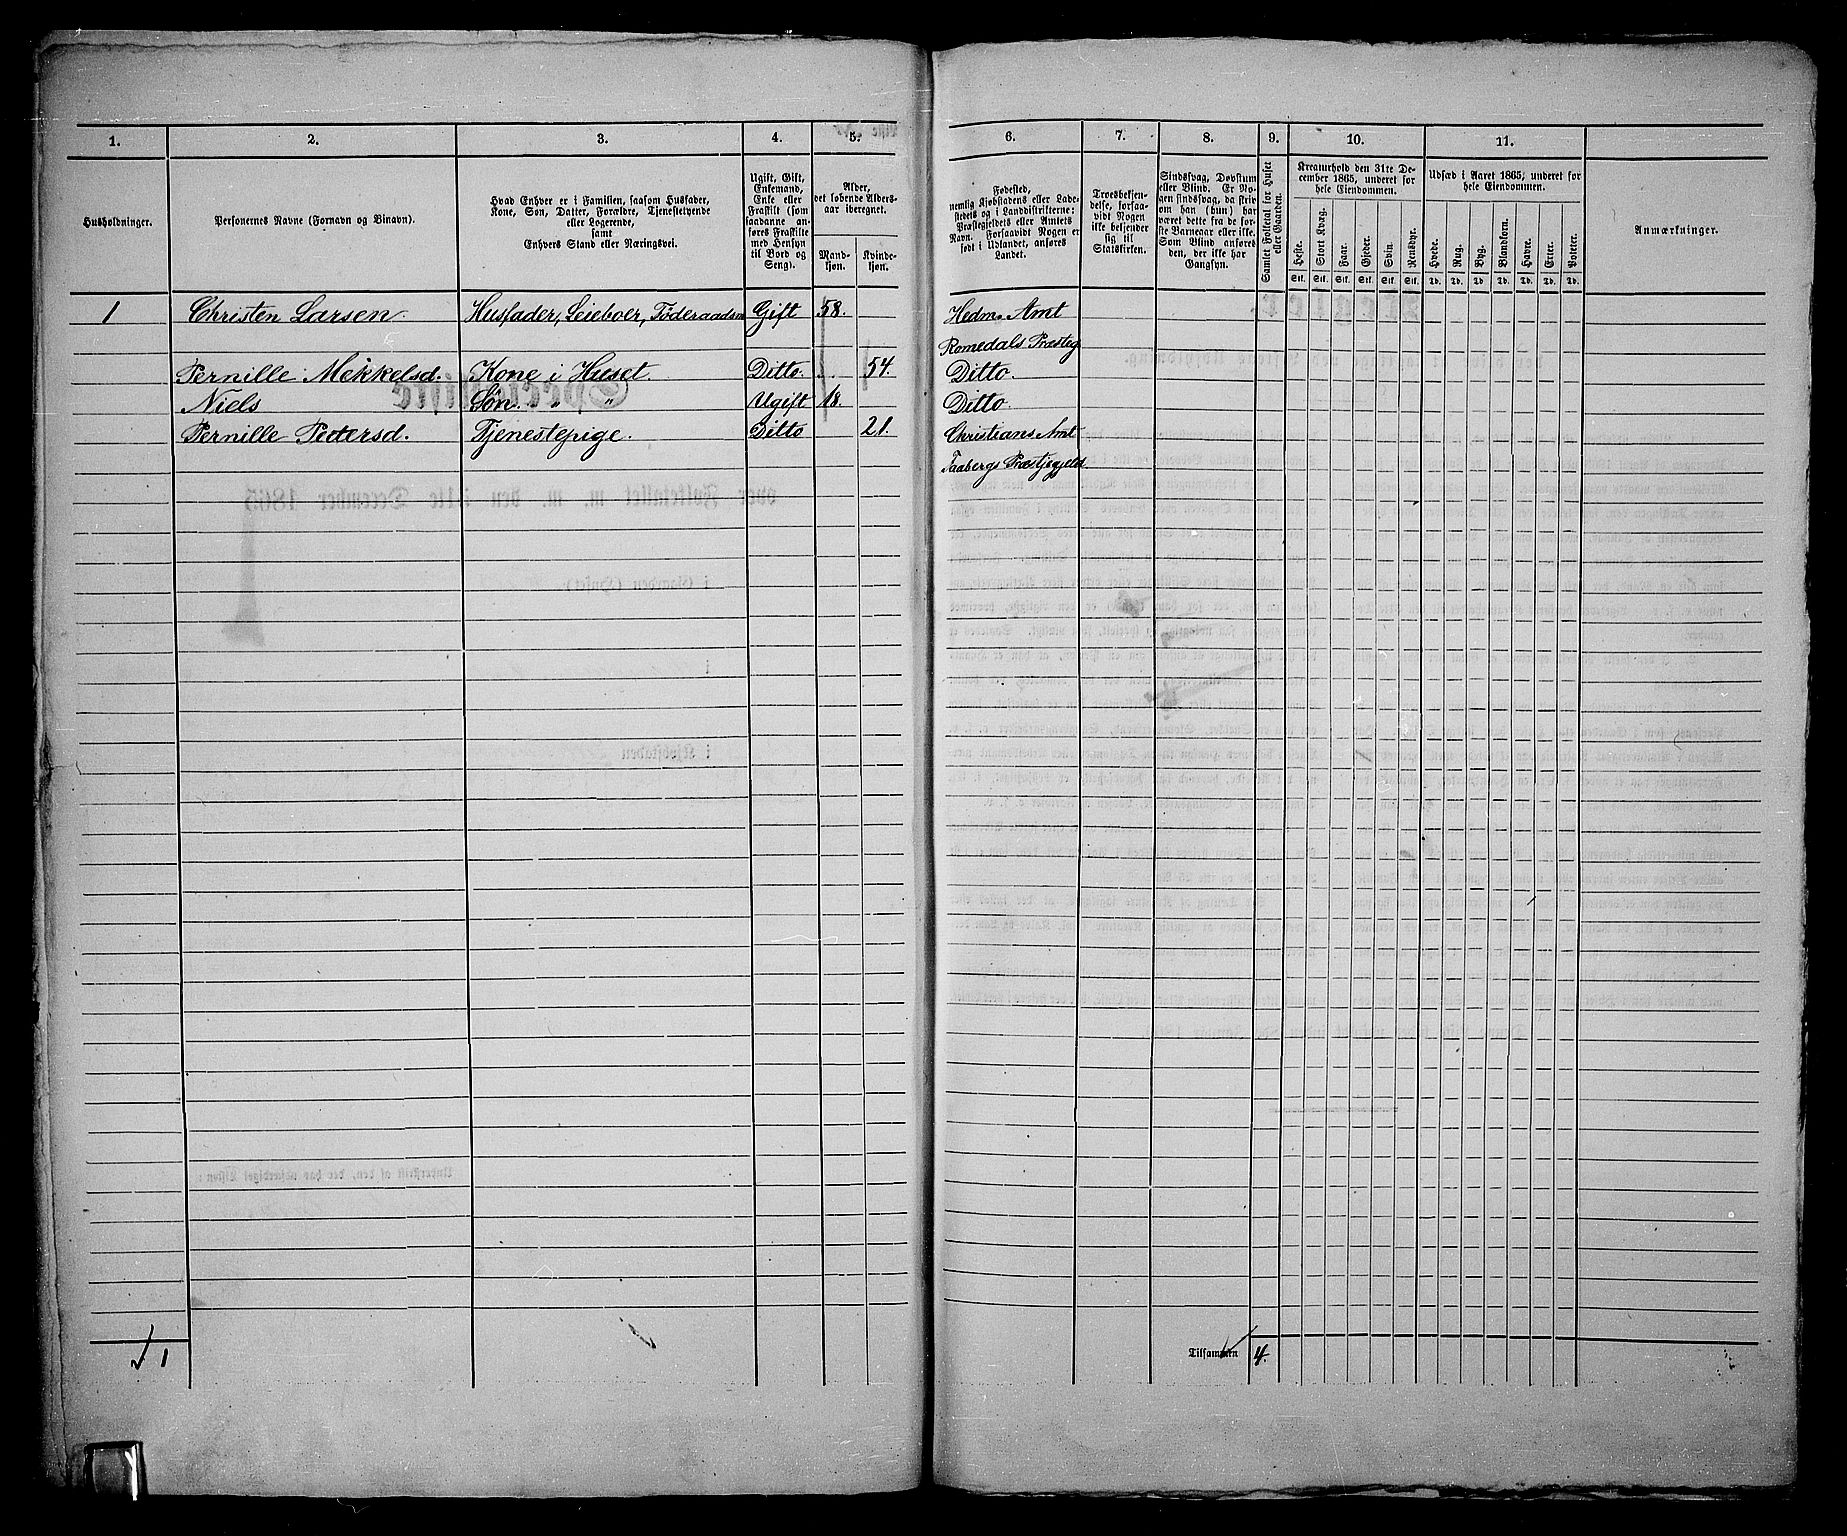 1. 2. 3. 4. 5. 6. 7. 8. 9. 10. 11.
Husholdninger.
Personernes Navne (Fornavn og Binavn).
Hvad Enhver er i Familien, saasom Husfader,
Kone, Søn, Datter, Forældre, Tjenestetyende
eller Logerende,
samt
Enhvers Stand eller Næringsvei.
Ugift, Gift,
Enkemand,
Enke eller
Fraskilt (som
saadanne an-
føres Fraskilte
med Hensyn
til Bord og
Seng).
Alder,
det løbende Alders-
aar iberegnet.
Mand-
kjøn.
Kvinde-
kjøn.
Fødested,
nemlig Kjøbstadens eller Lade-
stedets og i Landdistrikterne:
Præstegjeldets eller Amtets
Navn. Forsaavidt Nogen er
født i Udlandet, anføres
Landet.
Troesbekjen-
delse, forsaa-
vidt Nogen
ikke bekjender
sig til
Statskirken.
Sindssvag, Døvstum
eller Blind. Er No-
gen sindssvag, da skriv
om han (hun) har
været dette fra de før-
ste Barneaar eller ikke.
Som Blind anføres
den, der ikke har
Gangsyn.
Samlet Folketal for Huset
eller Gaarden.
Kreaturhold den 31te De-
cember 1865, underet for
hele Eiendommen.
Heste. Stort Kvæg. Faar. Gjeder. Svin. Rensdyr.
Stk. Stk. Stk. Stk. Stk. Stk.
Udsæd i Aaret 1865, underet for
hele Eiendommen.
Hvede. Rug. Byg. Blandkorn. Havre. Erter. Poteter.
Td. Td. Td. Td. Td. Td. Td.
Anmærkninger.
1 Christen Larsen Husfader, Leieboer, Føderaadsm Gift 58. Hedm. Amt
Romedals Præsteg
Pernille Mekkelsd. Kone i Huset. Ditto. 54. Ditto.
Niels Søn. " " Ugift 18. Ditto.
Pernille Pedersd. Tjenestepige. Ditto 21. Christians Amt
Faabergs Præstjegjeld
1 Tilsammen 4.